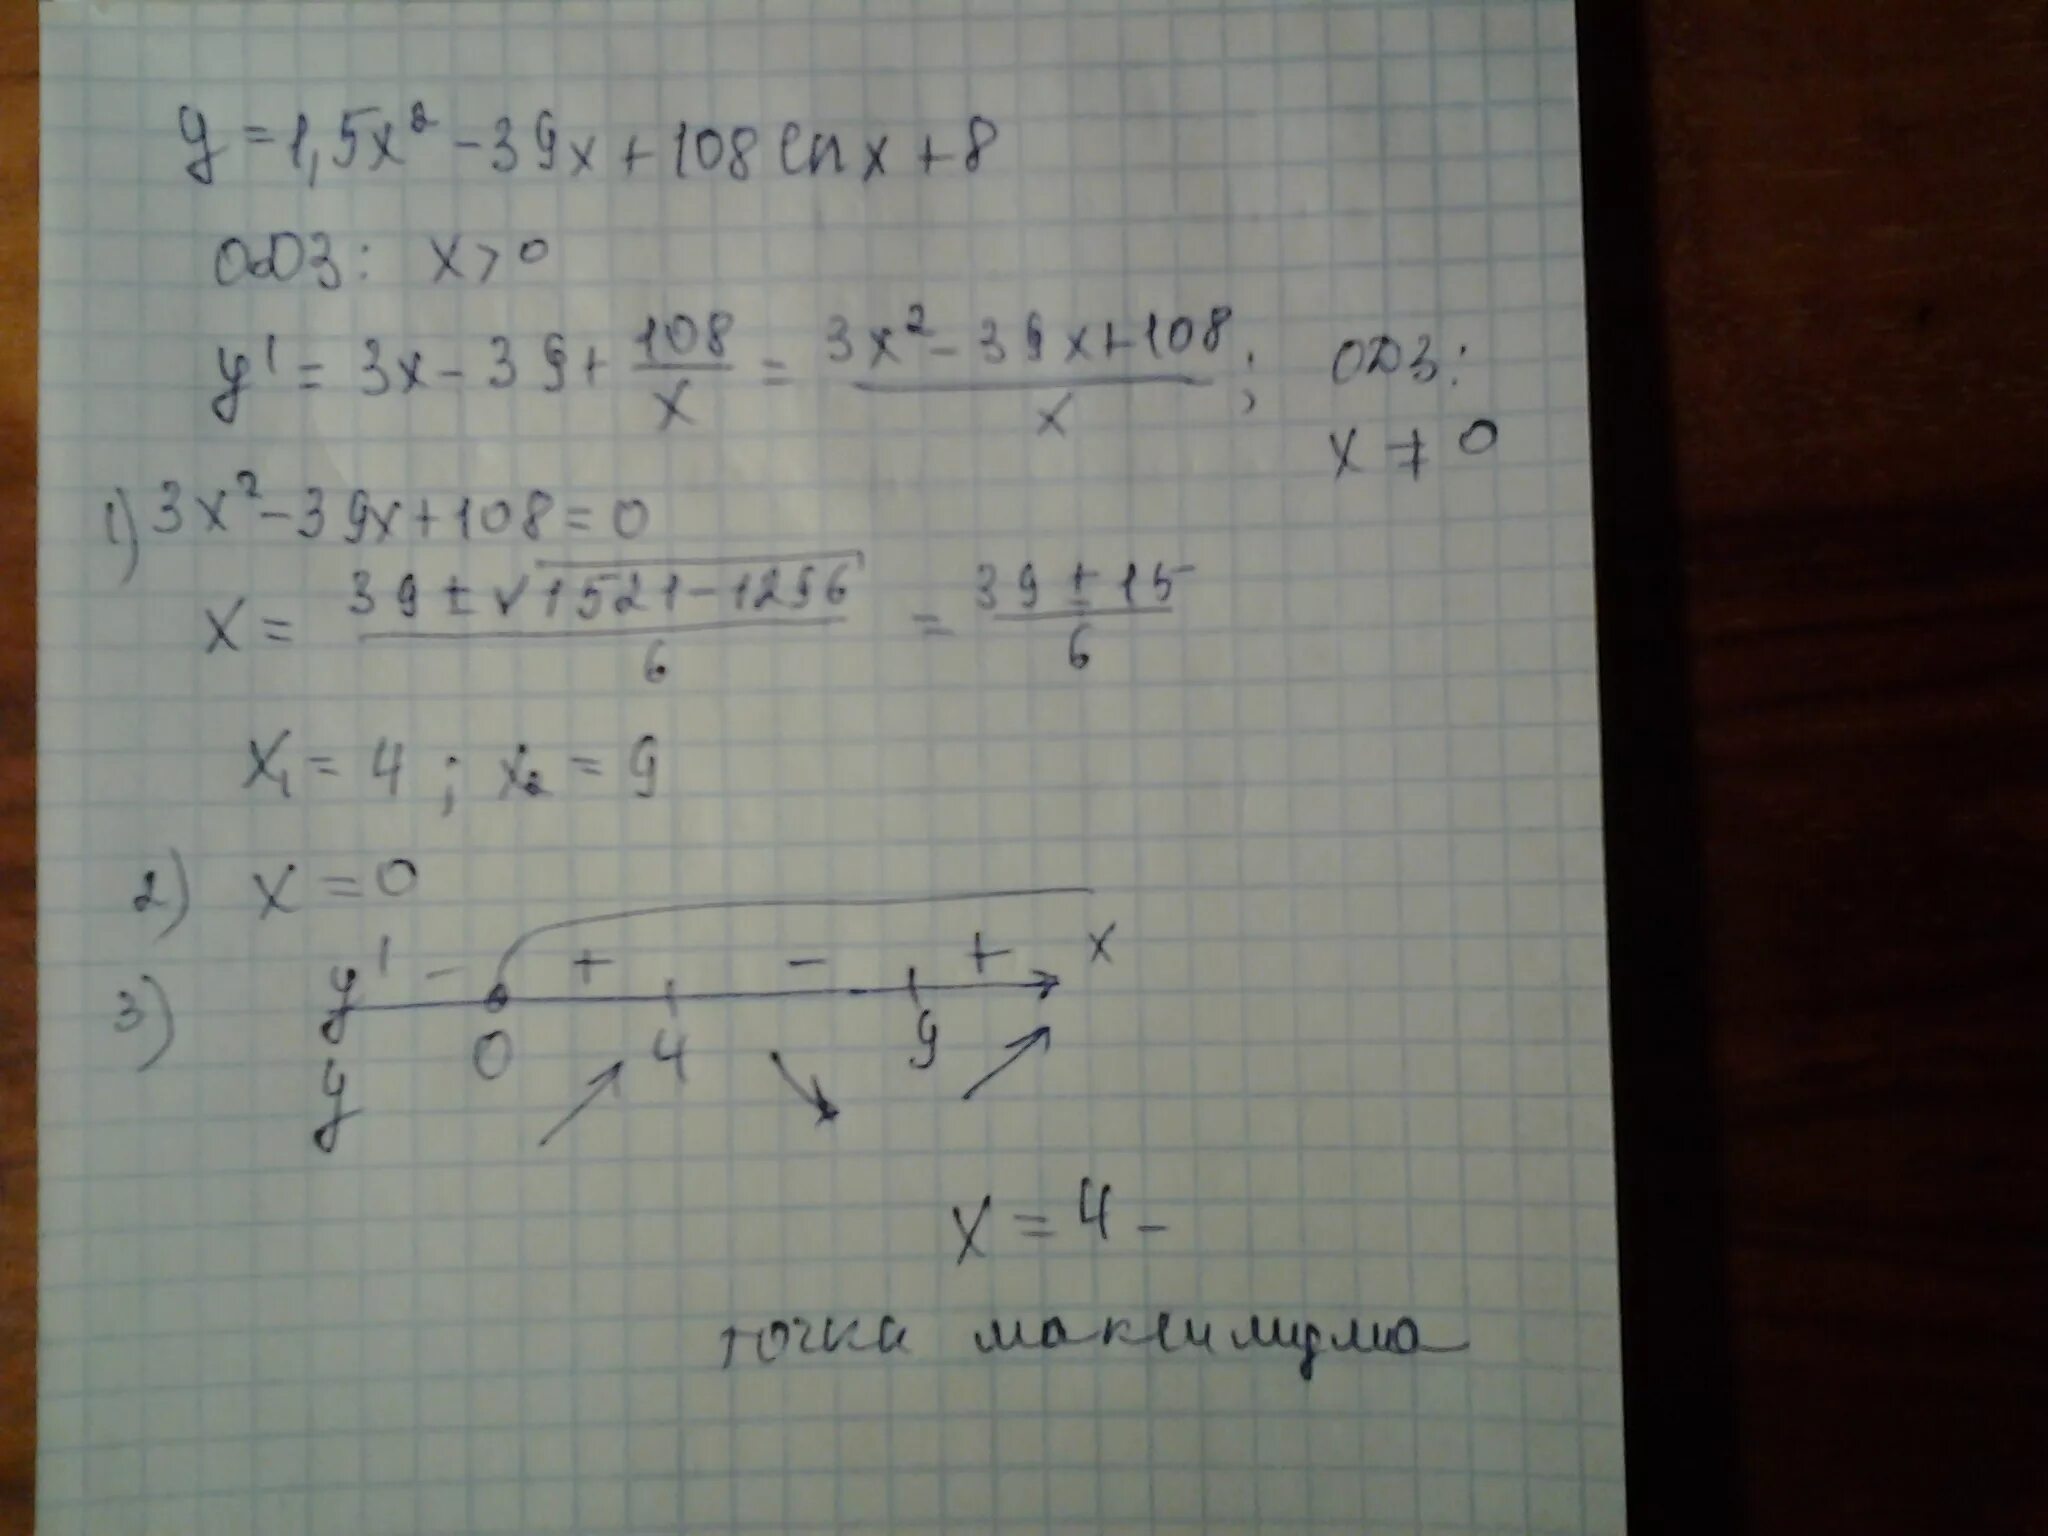 y = 1,5x² - 39x + 108 ln x + 8
ОДЗ: x > 0
y' = 3x - 39 + 108/x = (3x² - 39x + 108)/x ; ОДЗ: x ≠ 0
1) 3x² - 39x + 108 = 0
x = (39 ± √(1521 - 1296))/6 = (39 ± 15)/6
x₁ = 4 ; x₂ = 9
2) x = 0
3) y' - + - + x
0 4 9
y
x = 4 -
точка максимума